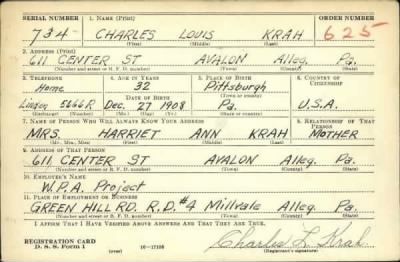 SERIAL NUMBER 1. NAME (Print) ORDER NUMBER
734 CHARLES LOUIS KRAH 625
(First) (Middle) (Last)
2. ADDRESS (Print)
611 CENTER ST AVALON Alleg. Pa.
(Number and street or R. F. D. number) (Town) (County) (State)
3. TELEPHONE 4. AGE IN YEARS 5. PLACE OF BIRTH 6. COUNTRY OF CITIZENSHIP
Home 32 Pittsburgh
DATE OF BIRTH (Town or county)
Linden Dec. 27 1908 Pa. U.S.A.
(Exchange) (Number) (Mo.) (Day) (Yr.) (State or country)
7. NAME OF PERSON WHO WILL ALWAYS KNOW YOUR ADDRESS 8. RELATIONSHIP OF THAT PERSON
MRS. HARRIET ANN KRAH MOTHER
(Mr., Mrs., Miss) (First) (Middle) (Last)
9. ADDRESS OF THAT PERSON
611 CENTER ST AVALON Alleg. Pa.
(Number and street or R. F. D. number) (Town) (County) (State)
10. EMPLOYER'S NAME
W.P.A. Project
11. PLACE OF EMPLOYMENT OR BUSINESS
GREEN HILL RD. R.D.#4 Millvale Alleg. Pa.
(Number and street or R. F. D. number) (Town) (County) (State)
I AFFIRM THAT I HAVE VERIFIED ABOVE ANSWERS AND THAT THEY ARE TRUE.
REGISTRATION CARD
D. S. S. Form 1 (over) 16—17105 Charles L. Krah
(Registrant's signature)